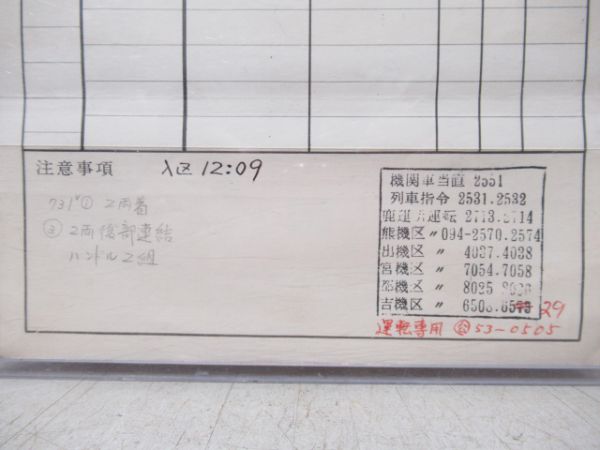 注意事項 入区 12:09
731 ① 2両着
② 2両後部連結
ハンドル2組
機関車当直 2551
列車指令 2531.2532
鹿運 運転 2713.2714
熊機区 〃 094-2570.2574
出機区 〃 4037.4038
宮機区 〃 7054.7058
〃 8025
吉機区 〃 29
運転専用 53-0505